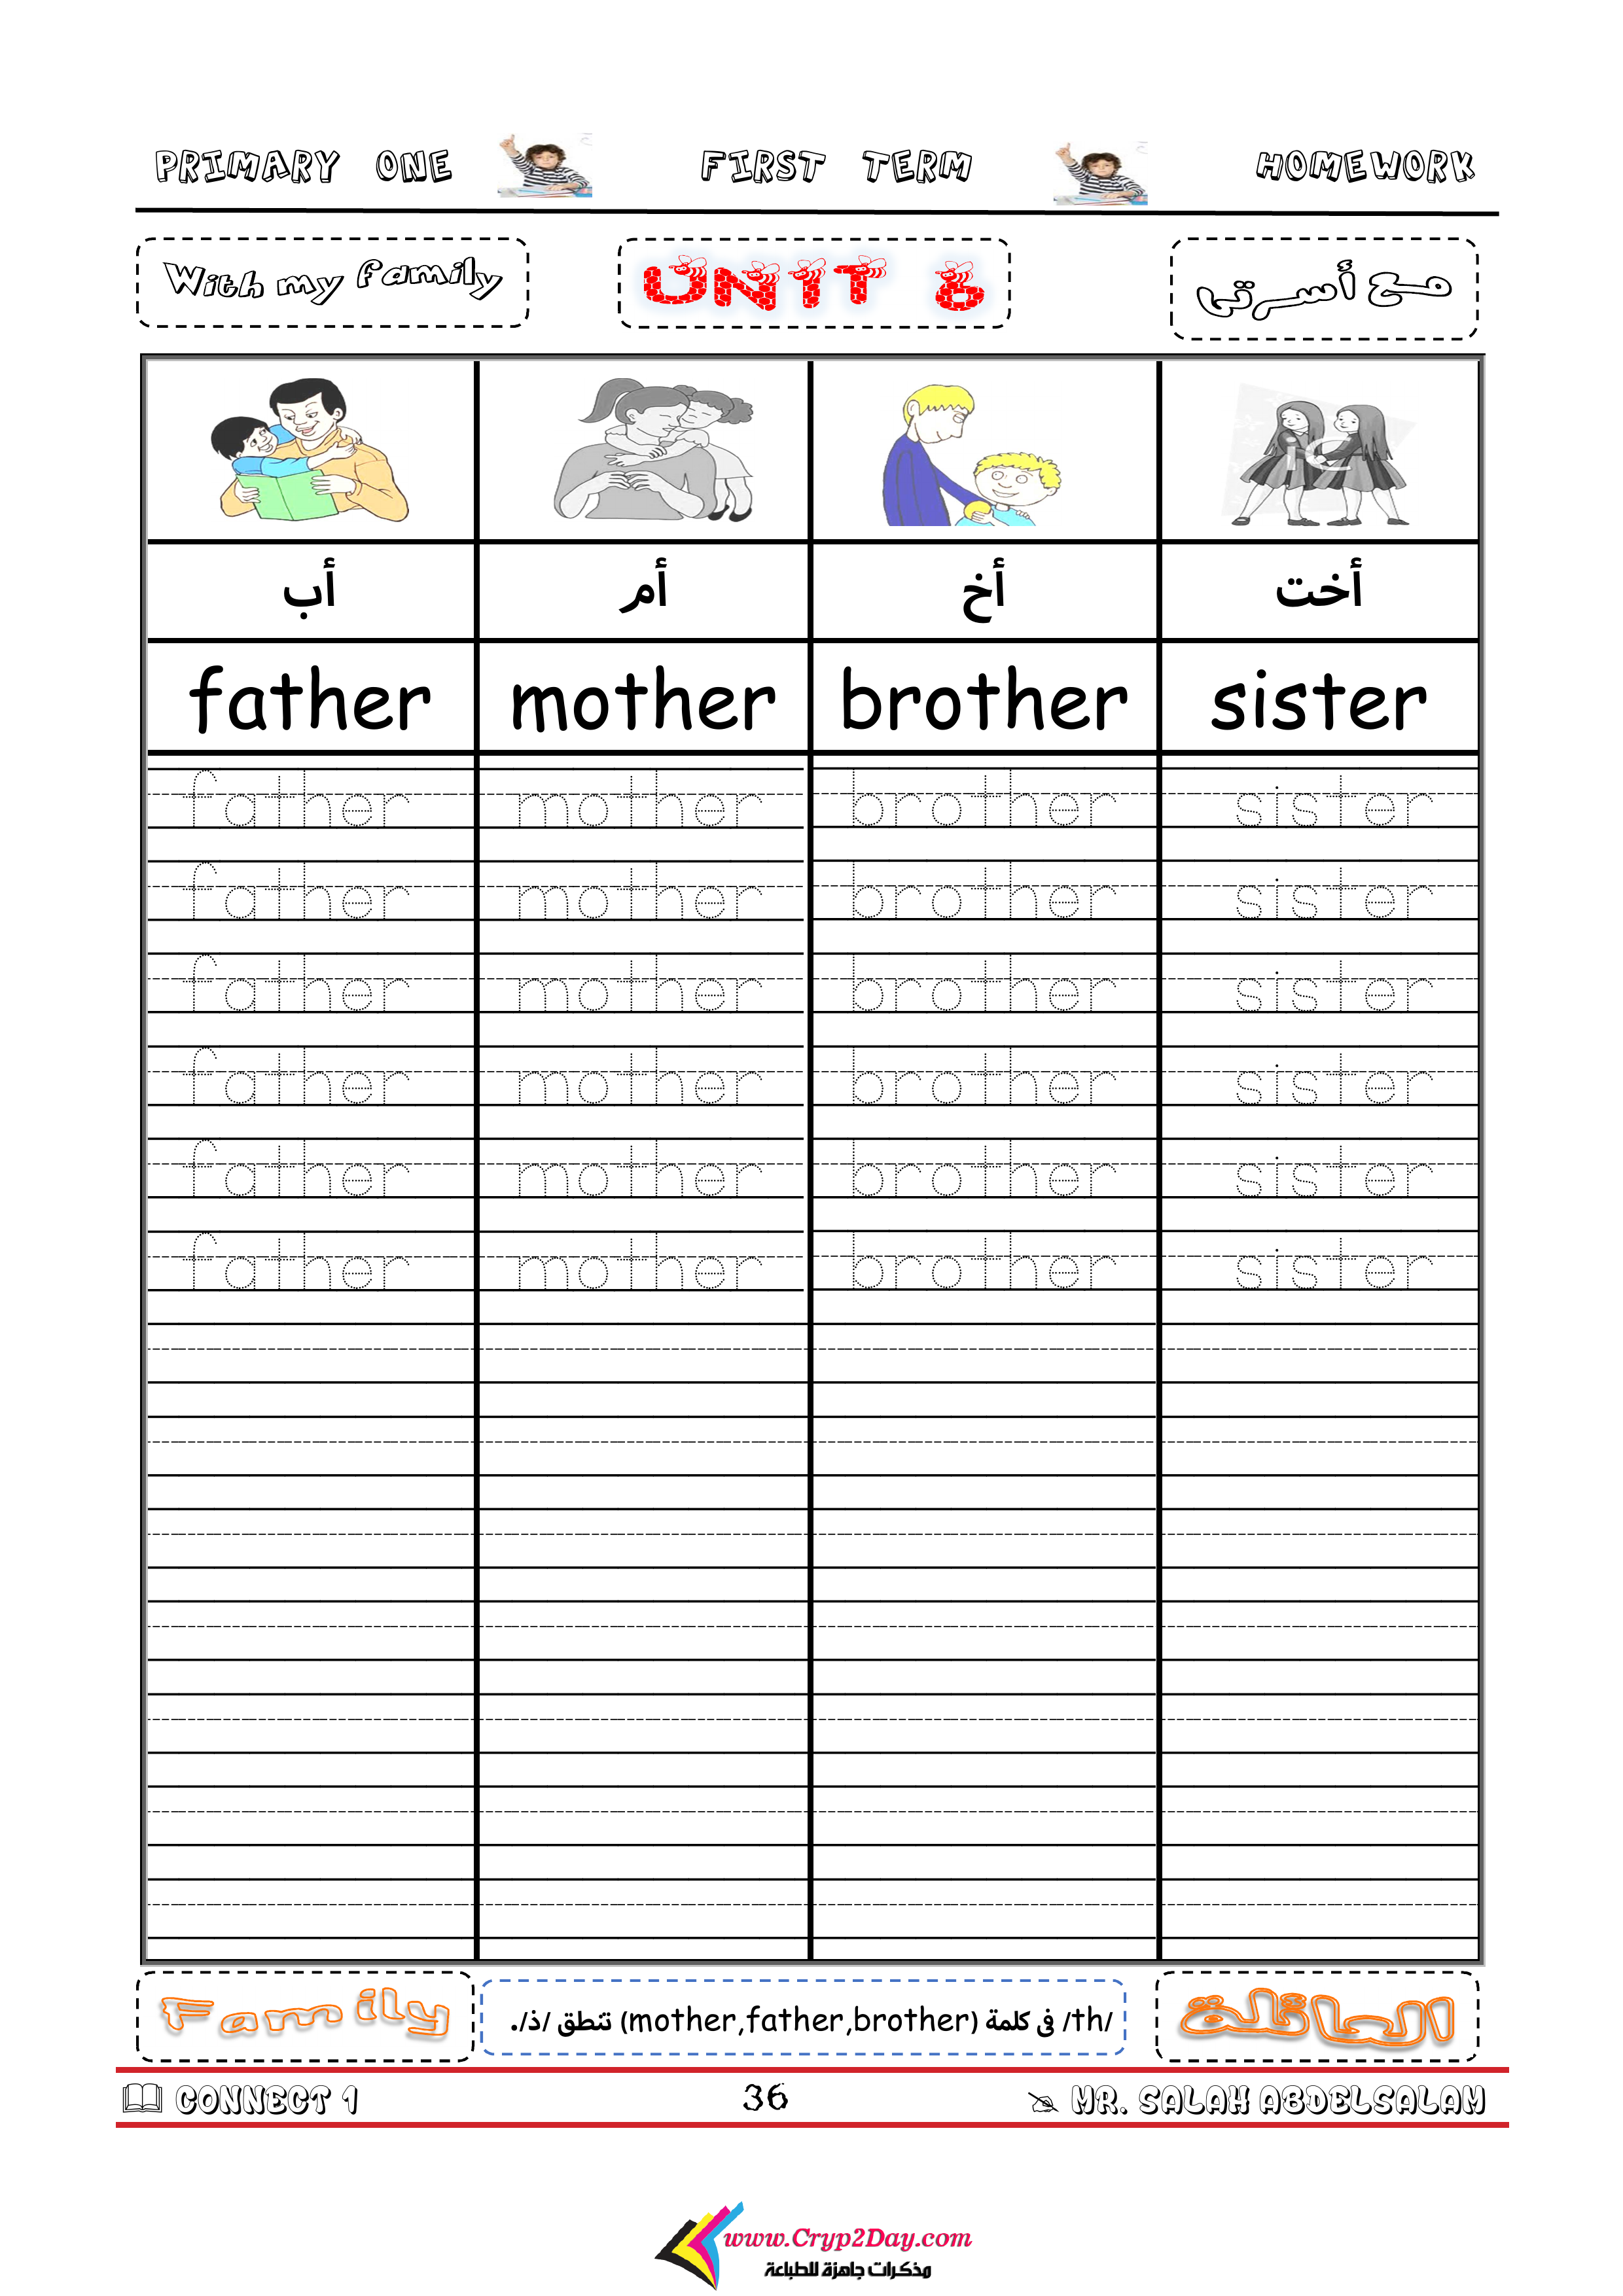 PRIMARY ONE FIRST TERM HOMEWORK
With my family UNIT 6 مع أسرتى
أب أم أخ أخت
father mother brother sister
father mother brother sister
father mother brother sister
father mother brother sister
father mother brother sister
father mother brother sister
father mother brother sister
Family /th/ فى كلمة (mother,father,brother) تنطق /ذ/. العائلة
CONNECT 1 36 MR. SALAH ABDELSALAM
www.Cryp2Day.com
مذكرات جاهزة للطباعة